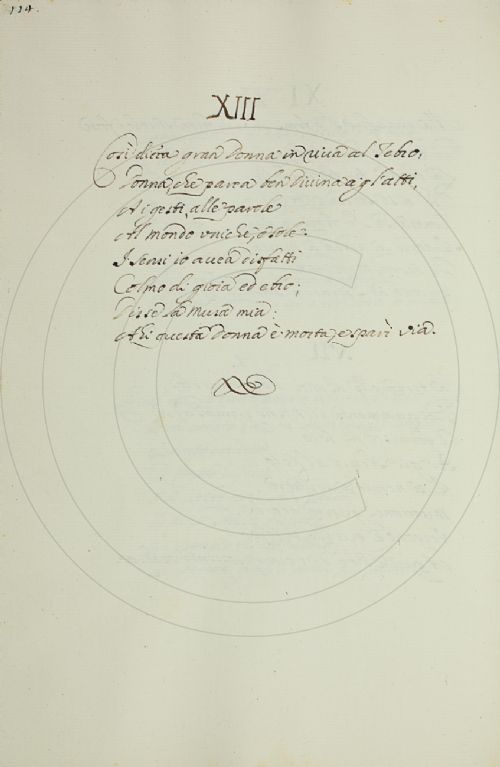 114.
XIII
Così dicea gran Donna in riva al Tebro,
Donna, che parea ben Divina a gl'atti,
A i gesti, alle parole
Al mondo uniche, o sole.
I sensi io avea disfatti
Colmo di gioia ed ebro;
Disse la Musa mia:
Ahi questa Donna è morta, e sparì via.